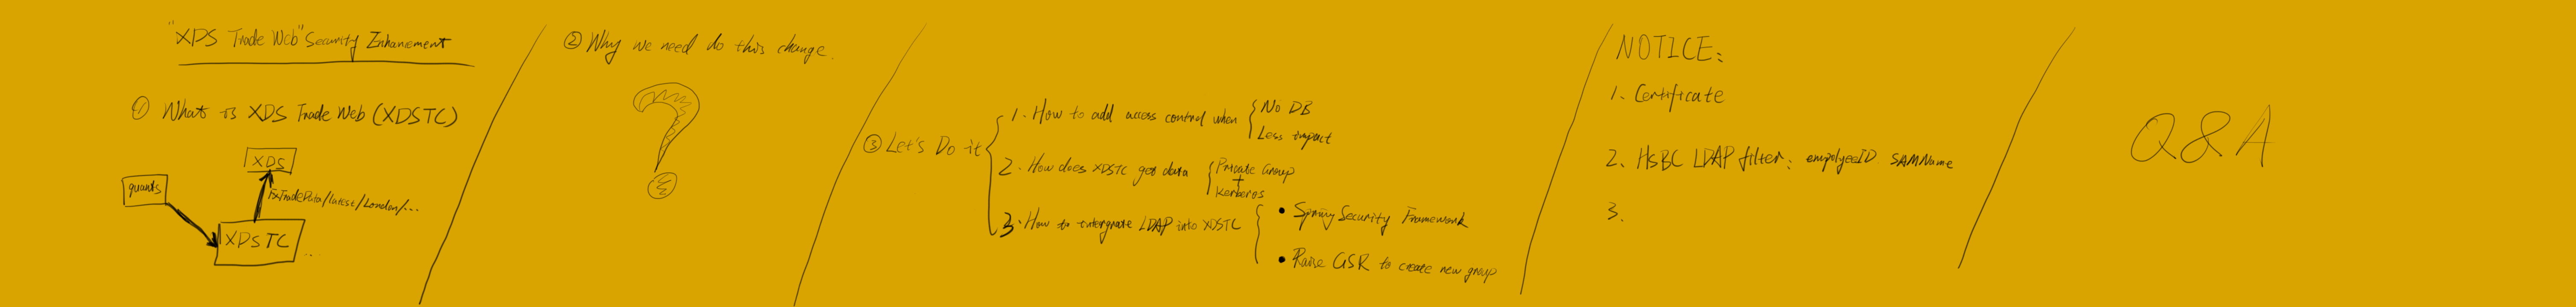 "XDS Trade Web" Security Enhancement
① What is XDS Trade Web (XDSTC)
XDS
quants
FxTradeData/latest/London/...
XDSTC
..
② Why we need do this change.
?
③ Let's Do it
1. How to add access control when
No DB
Less impact
2. How does XDSTC get data
Private Group
+
Kerberos
3. How to intergrate LDAP into XDSTC
• Spring Security Framework
• Raise GSR to create new group
NOTICE:
1. Certificate
2. HSBC LDAP filter: employeeID SAMName
3.
Q&A